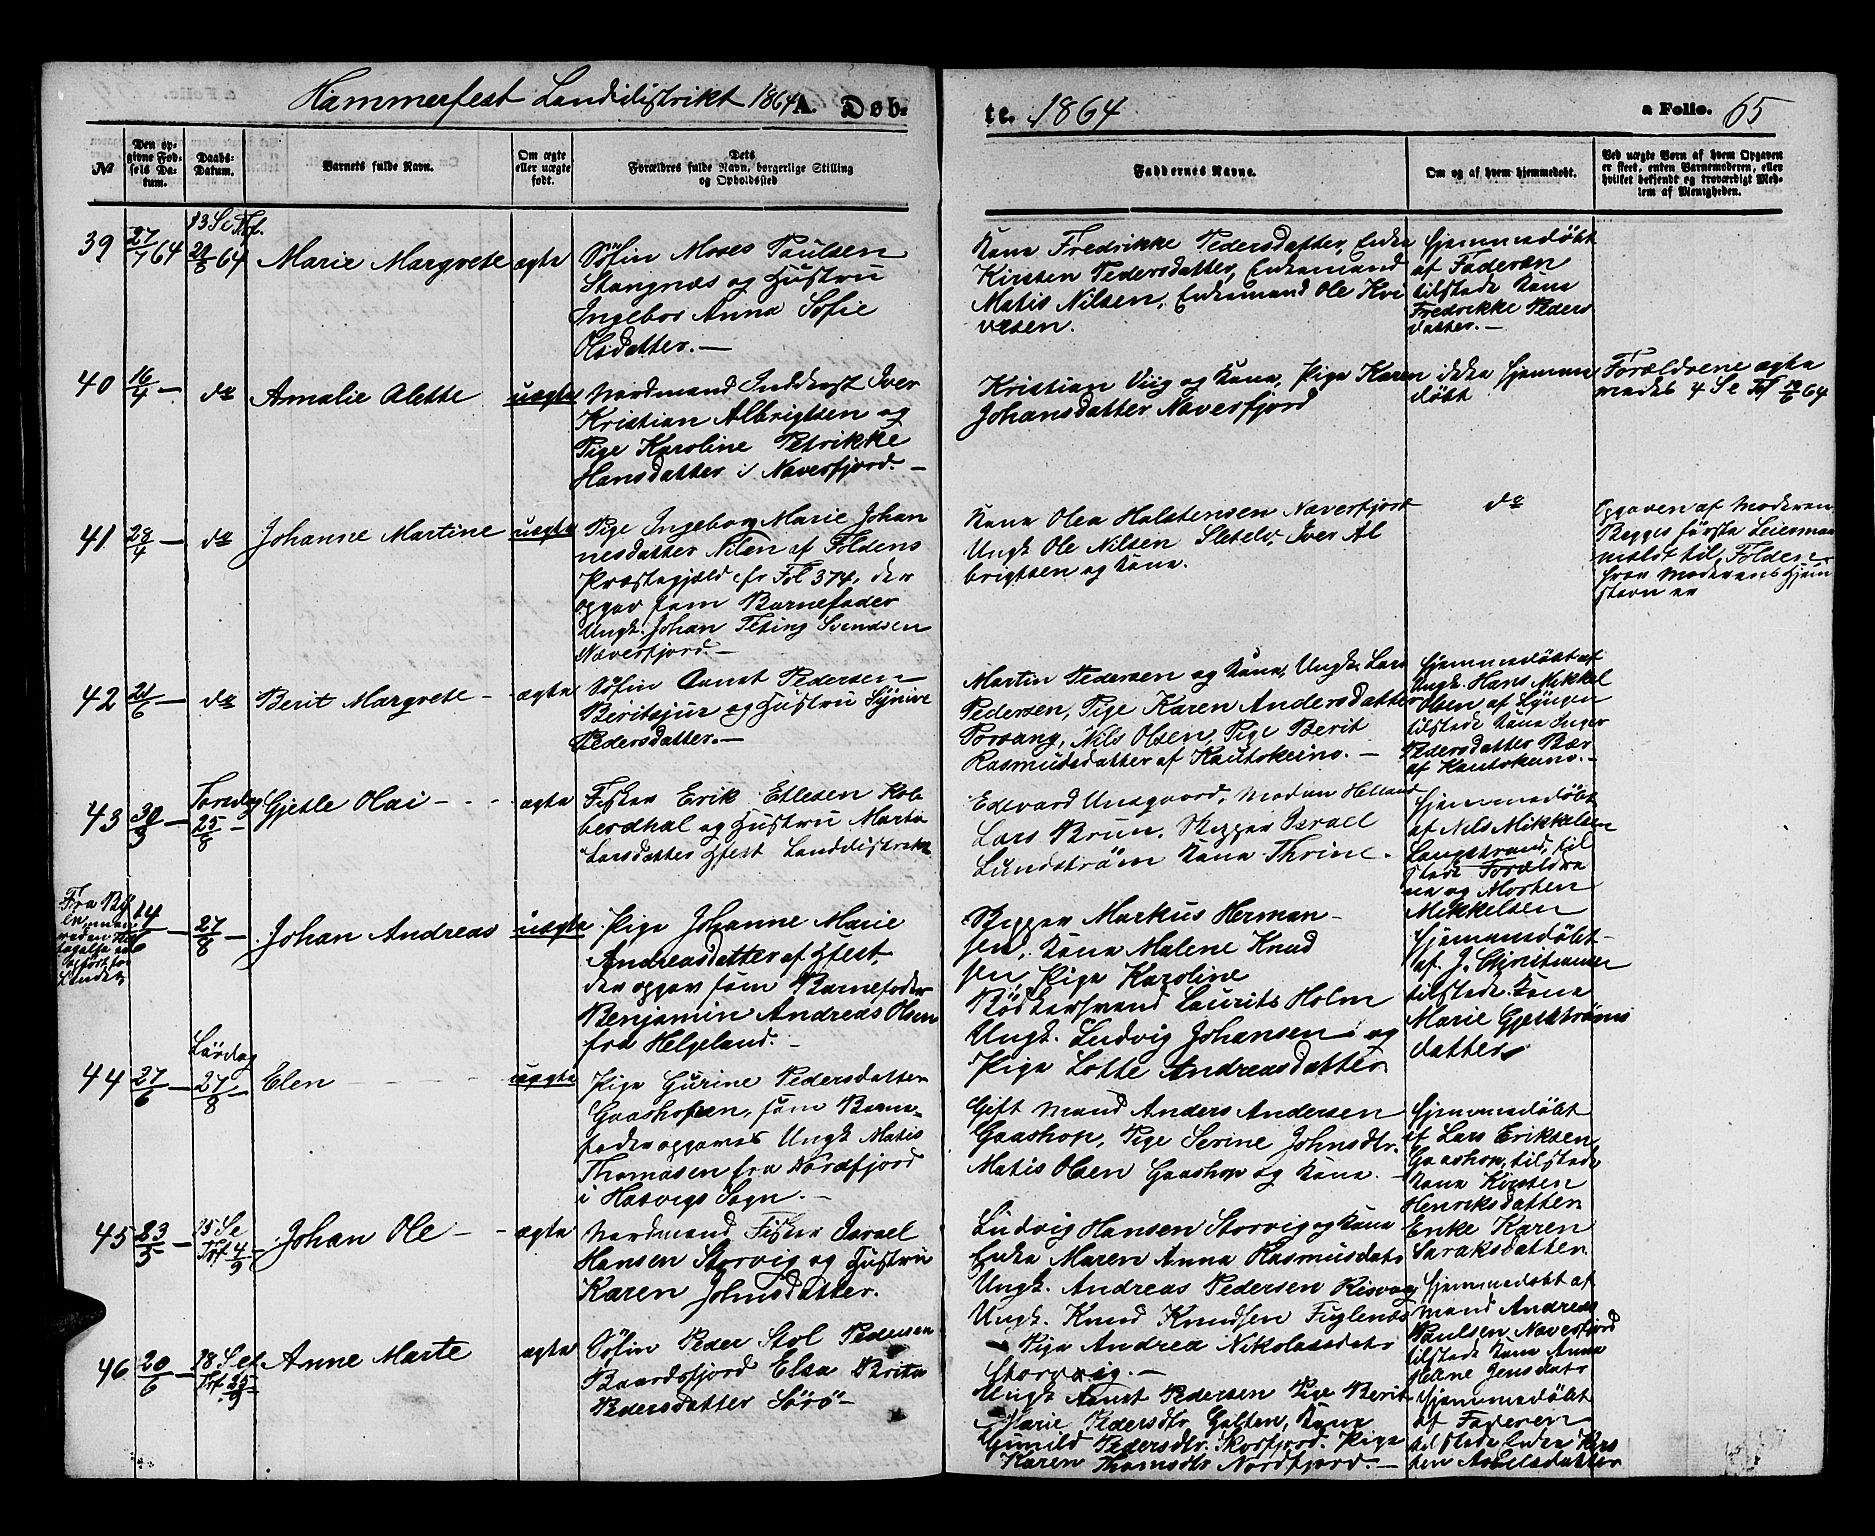 Hammerfest Landdistrikt 1864 A. Døb-
te. 1864
a Folio. 65
№
Den op-
givne Fød-
sels Da-
tum.
Daabs-
Datum.
Barnets fulde Navn.
Om ægte
eller uægte
født.
Dets
Forældres fulde Navn, borgerlige Stilling
og Opholdssted
Faddernes Navne.
Om og af hvem hjemmedøbt.
Ved uægte Børn af hvem Opgaven
er skeet, enten Barnemoderen, eller
hvilket bekjendt og troværdigt Med-
lem af Menigheden.
39 27/7 64
13 S e Trf.
28/8 64
Marie Margrete
ægte
Søfin Moses Paulsen
Stangnæs og Hustru
Ingebor Anna Sofie
Olsdatter. —
Kone Fredrikke Pedersdatter, Enke
Kirsten Pedersdatter, Enkemand
Matis Nilsen, Enkemand Ole Kri
Hjemmedøbt
af Faderen
tilstede Kone
Fredrikke Peders
datter. —
40 16/4 —
do
Amalie Alette
uægte
Nordmand Inderst Iver
Kristian Albrigtsen og
Pige Karoline Petrikke
Hansdatter i Naverfjord. —
Kristian Viig og Kone, Pige Karen
Johansdatter Naverfjord
ikke hjemme
døbt
Forældrene ægte
viedes 4 S e Trf 19/6 64
41 28/4 —
do
Johanne Martine
uægte
Pige Ingeborg Marie Johan
nesdatter Nilen af Foldens
Præstegjeld cfr Fol 374, der
opgav som Barnefader
Ungk. Johan Svendsen
Naverfjord. —
Kone Olea Halstensen Naverfjord
Ungk Ole Nilsen Sletelv, Iver Al
brigtsen og Kone.
do
Opgaven af Moderen
Begges første Leiermaal
meldt til Folden
hvor Moderens Hjem
stavn er
42 21/6 —
do
Berit Margrete —
ægte
Søfin Aanut Pedersen
Beritsjur og Hustru Synive
Pedersdatter. —
Martin Pedersen og Kone, Ungk. Lars
Pedersen, Pige Karen Andersdatter
Porsang, Nils Olsen, Pige Berit
Rasmusdatter af Kautokeino. —
Hjemmedøbt af
Ungk. Hans Mikkel
Olsen af Lyngen
tilstede Kone Inger
Pedersdatter Bær
af Kautokeino. —
43 30/3 —
Torsdag
25/8 —
Gjetle Olai — - -
ægte
Fisker Erik Etlesen Kob
berdhal og Hustru Marta
Larsdatter Hfest Landdistrikt
Edevard Unsgaard, Madam Helland
Lars Brun, Skipper Israel
Lundstrøm Kone Thrine.
Hjemmedøbt
af Nils Mikkelsen
Langstrand, til
stede Forældre
ne og Morten
Mikkelsen
Fra By
en
14/6 —
27/8 —
Johan Andreas
uægte
Pige Johanne Marie
Andreasdatter af Hfest,
der opgav som Barnefader
Benjamin Andreas Olsen
fra Helgeland. —
Skipper Markus Herman-
sen, Kone Malene Knud
sen, Pige Karoline
Bødkersvend Laurits Holm
Ungk. Ludvig Johansen og
Pige Lotte Andreasdatter
Hjemmedøbt
af J. Christiansen
tilstede Kone
Marie Gjertstrøms
datter
44 27/6 —
Lørdag
27/8 —
Elen — - - -
uægte
Pige Gurine Pedersdatter
Gaashopen, som Barne-
fader opgaves Ungk Matis
Thomasen fra Nordfjord
i Hasvigs Sogn. —
Gift Mand Anders Andersen
Gaashop, Pige Serine Johnsdtr.
Matis Olsen Gaashop og Kone. —
Hjemmedøbt
af Lars Eriksen
Gaashop, tilstede
Kone Kirsten
Henriksdatter
Enke Karen
Saraksdatter
45 23/5 —
15 S e
Trf 4/9
Johan Ole —
ægte
Nordmand Fisker Israel
Hansen Storvig og Hustru
Karen Johnsdatter.
Ludvig Hansen Storvig og Kone
Enke Maren Anna Rasmusdatr
Ungk. Andreas Pedersen Risvaag
Ungk. Knud Knudsen Fuglenæs
Pige Andrea Nikolasdatr
Storvig. —
Hjemmedøbt af
Mand Andreas
Paulsen Naverfjord
tilstede Kone Anna
Helene Jensdatr
46 20/6 —
18 S ef
Trf 25/9 —
Anne Marte
ægte
Søfin Peder Stol Pedersen
Baardsfjord Elsa Brita
Pedersdatter Sørø —
Ungk Aanut Pedersen Pige Berit
Marie Pedersdtr, Galten, Kone
Gunild Pedersdtr. Skorfjord. Pige
Karen Thomsdtr Nordfjord. —
Hjemmedøbt
af Faderen
tilstede Enke Kirs
ten Axelsdatter